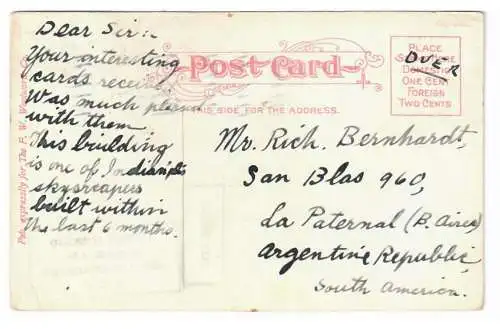 Dear Sir:
Your interesting
cards received
Was much pleased
with them.
This building
is one of Indianpls
skyscrapers
built within
the last 6 months.
Post Card
THIS SIDE FOR THE ADDRESS.
PLACE
DOMESTIC
ONE CENT
FOREIGN
TWO CENTS
OVER
Mr. Rich. Bernhardt,
San Blas 960,
La Paternal (B. Aires)
Argentine Republic,
South America.
Pub. expressly for The F. W. Woolworth Co.